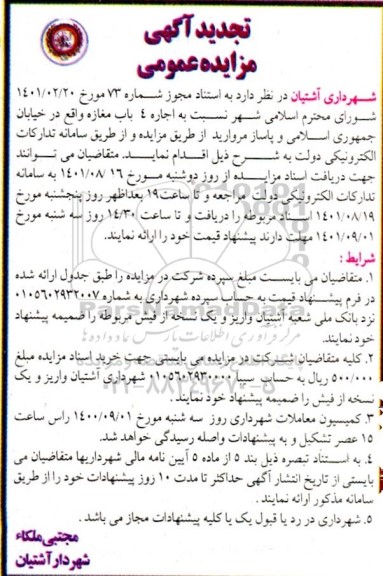 تجدید آگهی
مزایده عمومی
شهرداری آشتیان در نظر دارد به استناد مجوز شماره ۷۳ مورخ ۱۴۰۱/۰۲/۲۰
شورای محترم اسلامی شهر نسبت به اجاره ۴ باب مغازه واقع در خیابان
جمهوری اسلامی و پاساژ مروارید از طریق مزایده و از طریق سامانه تدارکات
الکترونیکی دولت به شرح ذیل اقدام نماید. متقاضیان می توانند
جهت دریافت اسناد مزایده از روز دوشنبه مورخ ۱۴۰۱/۰۸/۱۶ به سامانه
تدارکات الکترونیکی دولت مراجعه و تا ساعت ۱۹ بعدازظهر روز پنجشنبه مورخ
۱۴۰۱/۰۸/۱۹ اسناد مربوطه را دریافت و تا ساعت ۱۴/۳۰ روز سه شنبه مورخ
۱۴۰۱/۰۹/۰۱ مهلت دارند پیشنهاد قیمت خود را ارائه نمایند.
شرایط :
۱. متقاضیان می بایست مبلغ سپرده شرکت در مزایده را طبق جدول ارائه شده
در فرم پیشنهاد قیمت به حساب سپرده شهرداری به شماره ۰۱۰۵۶۰۲۹۳۲۰۰۷
نزد بانک ملی شعبه آشتیان واریز و یک نسخه از فیش مربوطه را ضمیمه پیشنهاد
خود نمایند.
۲. کلیه متقاضیان شرکت در مزایده می بایستی جهت خرید اسناد مزایده مبلغ
۵۰۰/۰۰۰ ریال به حساب سیبا ۰۱۰۵۶۰۲۹۳۰۰۰۰ شهرداری آشتیان واریز و یک
نسخه از فیش را ضمیمه پیشنهاد خود نمایند.
۳. کمیسیون معاملات شهرداری روز سه شنبه مورخ ۱۴۰۰/۰۹/۰۱ راس ساعت
۱۵ عصر تشکیل و به پیشنهادات واصله رسیدگی خواهد شد.
۴. به استناد تبصره ذیل بند ۵ از ماده ۵ آیین نامه مالی شهرداریها متقاضیان می
بایستی از تاریخ انتشار آگهی حداکثر تا مدت ۱۰ روز پیشنهادات خود را از طریق
سامانه مذکور ارائه نمایند.
۵. شهرداری در رد یا قبول یک یا کلیه پیشنهادات مجاز می باشد.
مجتبی ملکاء
شهردار آشتیان